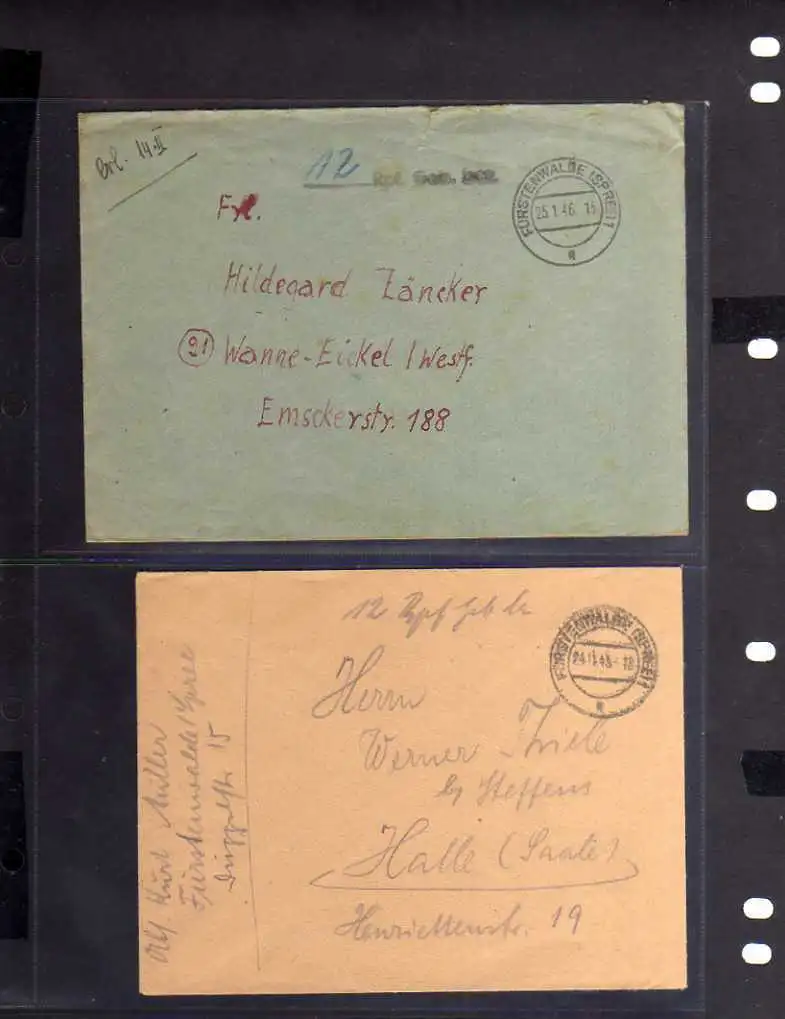 Erl. 14.II
12 Rpf. Geb. bez.
FÜRSTENWALDE (SPREE) 1
25.1.46. 15
a
Frl.
Hildegard Zäncker
21 Wanne-Eickel / Westf.
Emsckerstr. 188
12 Rpf Geb bz
FÜRSTENWALDE (SPREE) 1
18
a
Herrn
Werner Thiele
b/ Steffens
Halle (Saale)
Henriettenstr. 19
Kurt Müller
Fürstenwalde / Spree
15